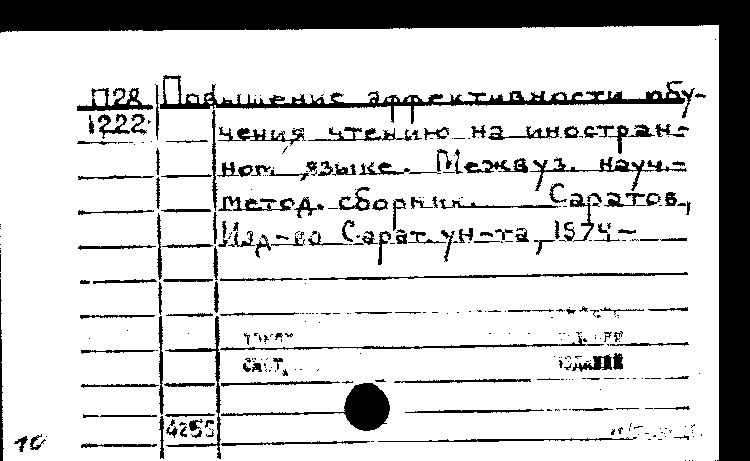 П28 Повышение эффективности обу-
1222 чения чтению на иностран-
ном языке. Межвуз. науч.-
метод. сборник. Саратов,
Изд-во Сарат. ун-та, 1974-
сист.
издания
4255
10